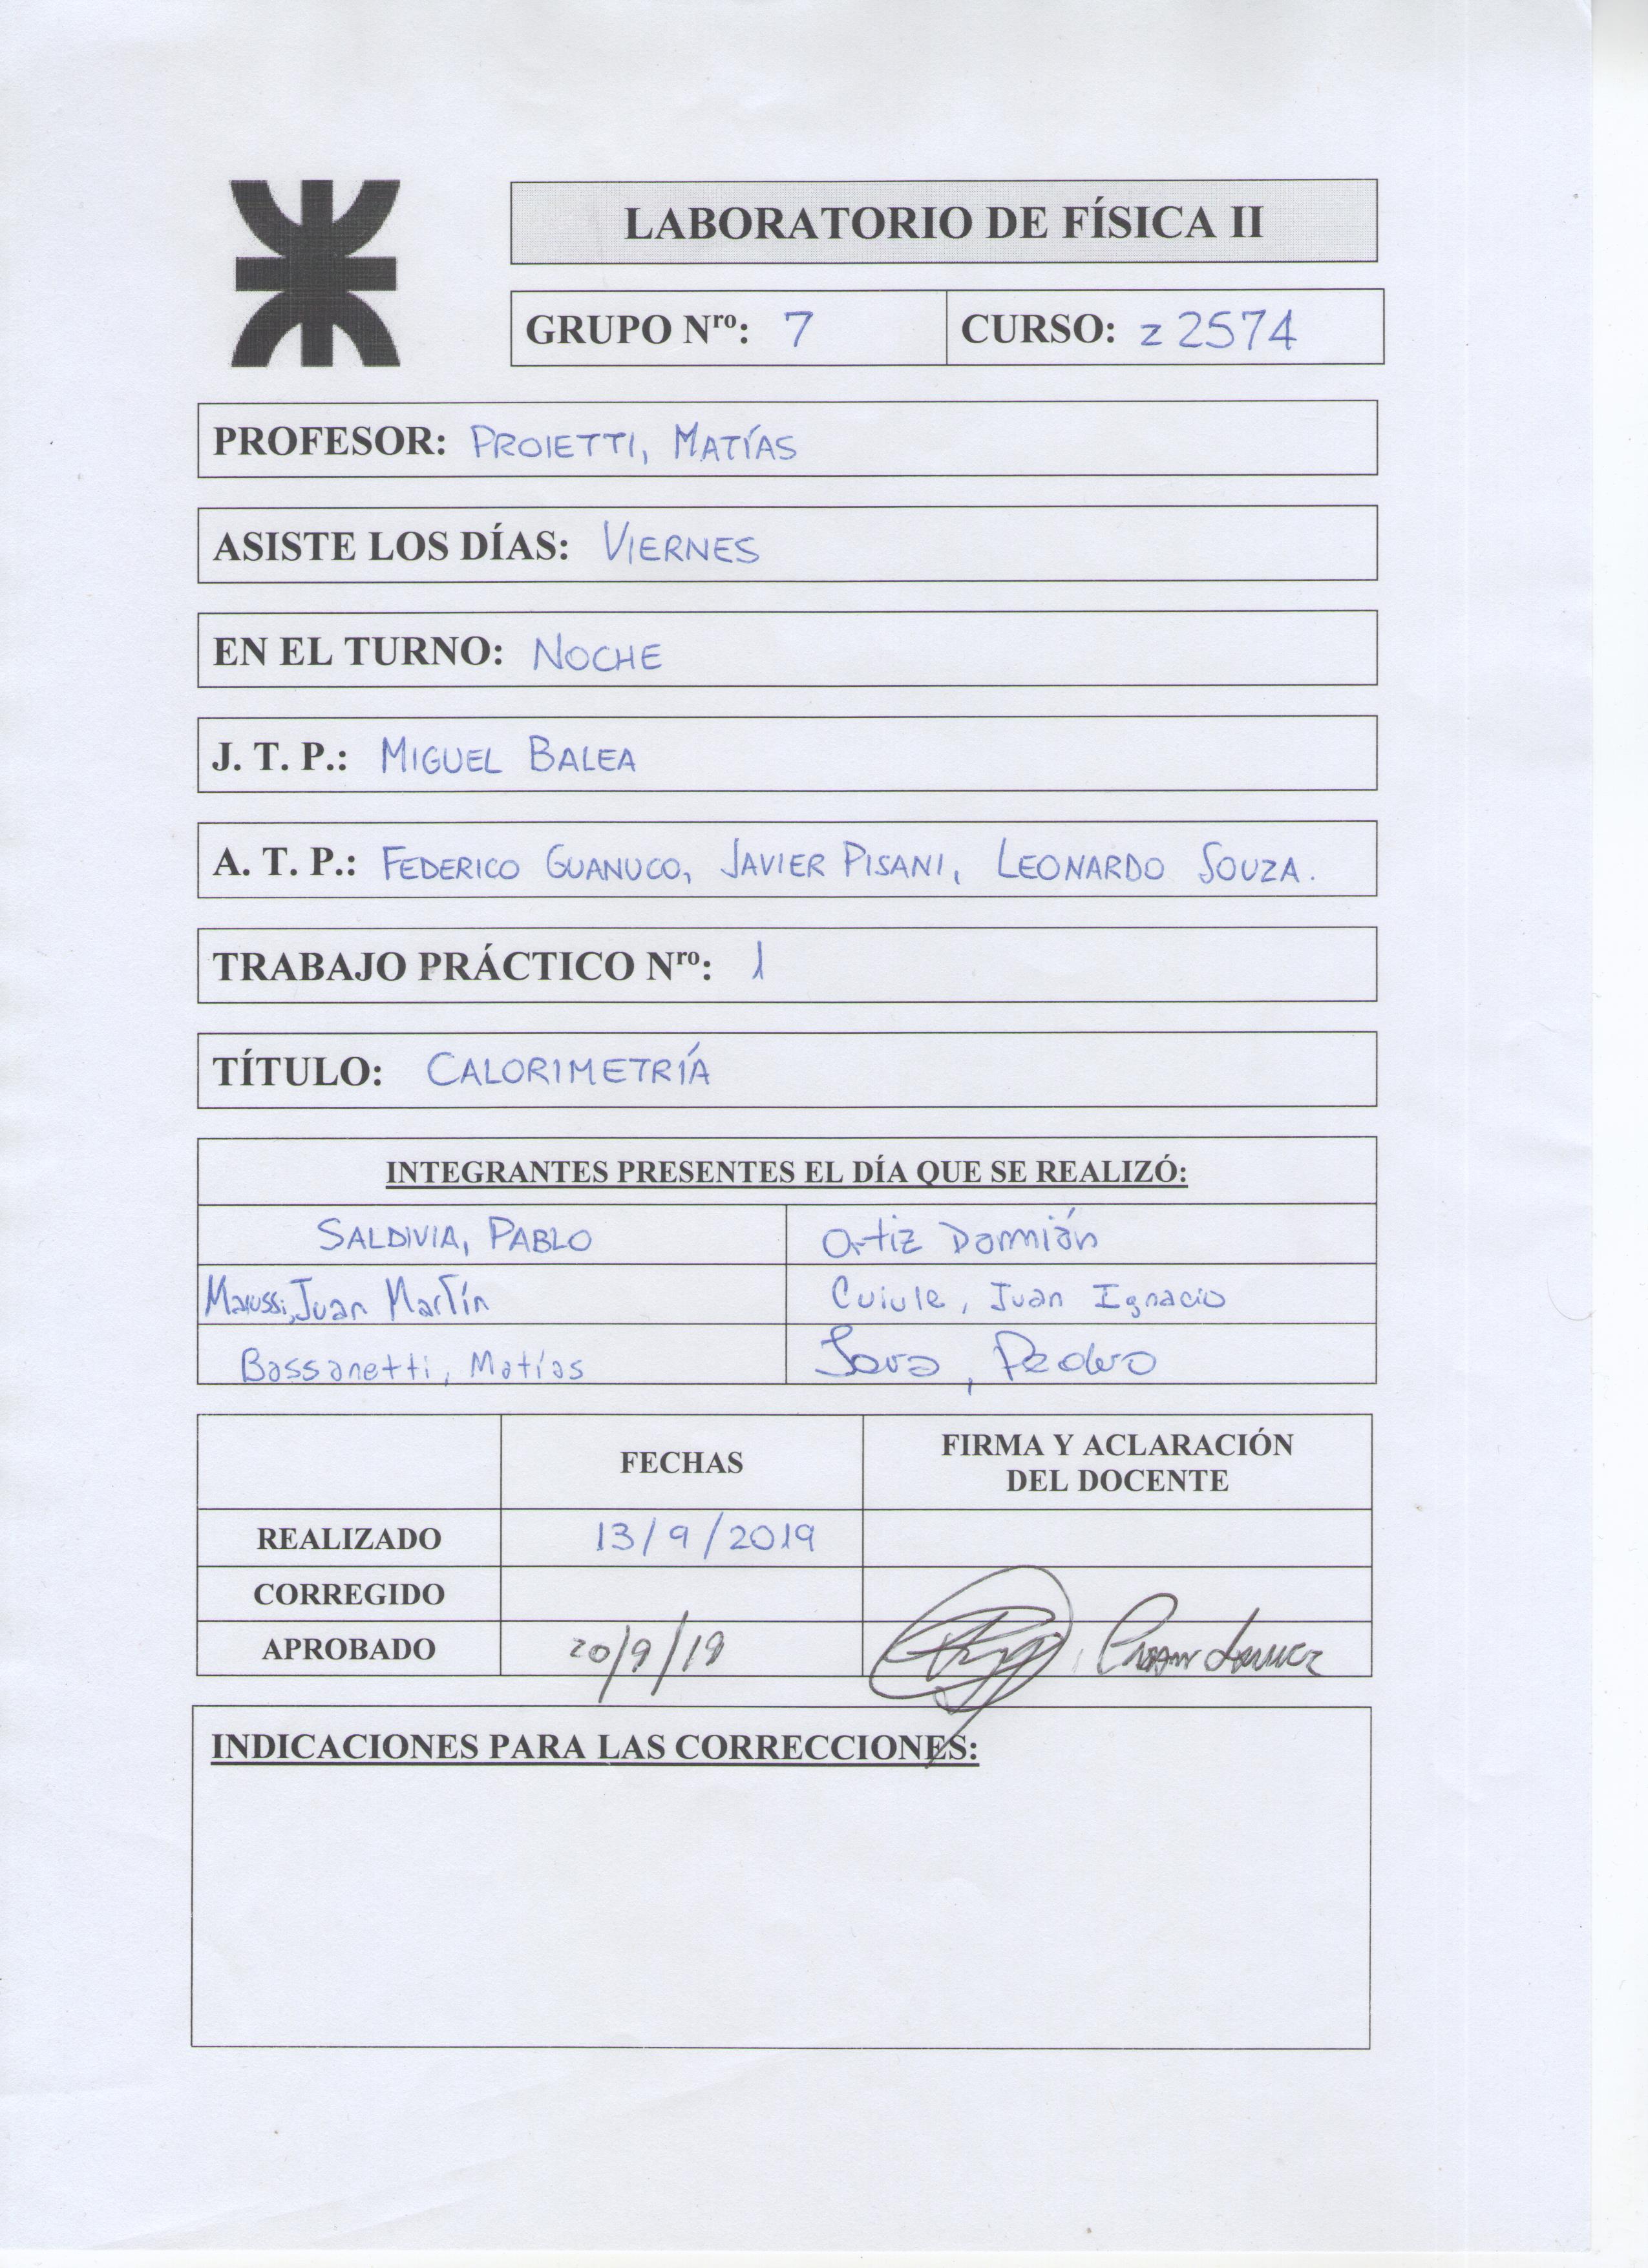 LABORATORIO DE FÍSICA II
GRUPO Nro: 7
CURSO: z 2574
PROFESOR: PROIETTI, MATÍAS
ASISTE LOS DÍAS: VIERNES
EN EL TURNO: NOCHE
J. T. P.: MIGUEL BALEA
A. T. P.: FEDERICO GUANUCO, JAVIER PISANI, LEONARDO SOUZA.
TRABAJO PRÁCTICO Nro: 1
TÍTULO: CALORIMETRÍA
INTEGRANTES PRESENTES EL DÍA QUE SE REALIZÓ:
SALDIVIA, PABLO
Ortiz Damián
Marussi, Juan Martín
Cuiule, Juan Ignacio
Bassanetti, Matías
Pedro
FECHAS
FIRMA Y ACLARACIÓN
DEL DOCENTE
REALIZADO
13/9/2019
CORREGIDO
APROBADO
20/9/19
INDICACIONES PARA LAS CORRECCIONES: